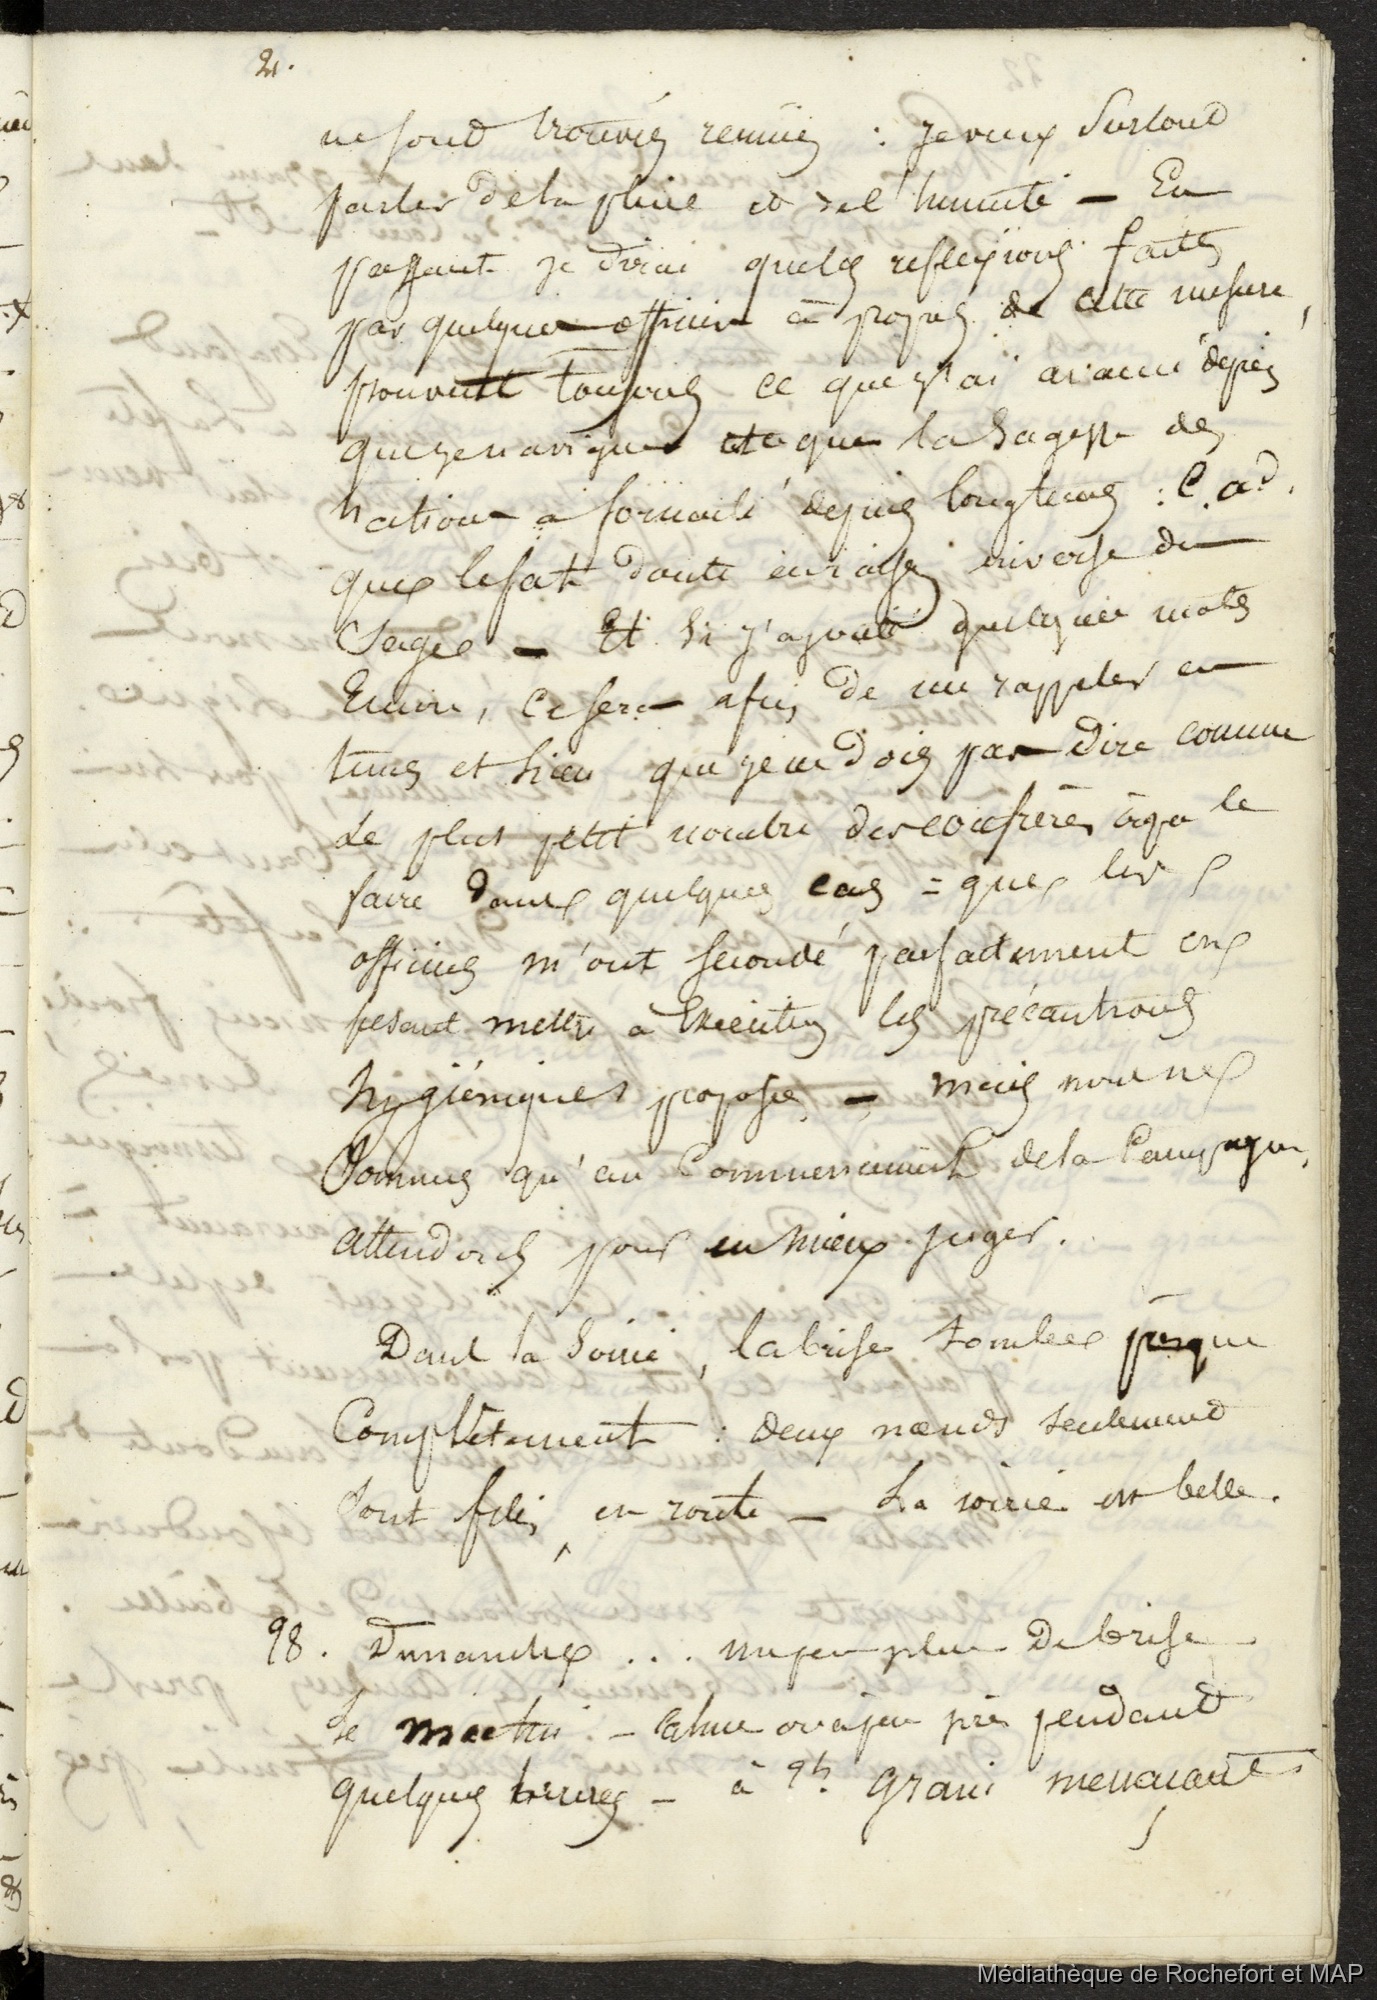 21.
ne sont trouvés reunies : je veux surtout
parler de la pluie et de l'humité — En
passant je dirai quelqs reflexions faites
par quelques officiers à propos de cette mesure,
prouvant toujours ce que j'ai avancé depuis
que je navigue et que la sagesse des
nations a formulé depuis longtems : C. a d.
que le fat doute en raison inverse du
Sage — Et si j'ajoute quelques mots
Encore, ce sera afin de me rappeler en
tems et lieu que je ne dois pas dire comme
le plus petit nombre des confrères à pu le
faire dans quelques cas = que les
officiers m'ont secondé parfaitement en
fesant mettre à Exécution les précautions
hygiéniques proposées — mais nous ne
Sommes qu'au Commencement de la Campagne,
attendons pour en mieux juger.
Dans la Soirée, la brise tombe presque
Complètement : deux nœuds seulement
sont filés en route — La soirée est belle.
98. Dimanche ... un peu plus de brise
le matin — calme ou à peu près pendant
quelques heures — à 9h. grain menaçant
Médiathèque de Rochefort et MAP